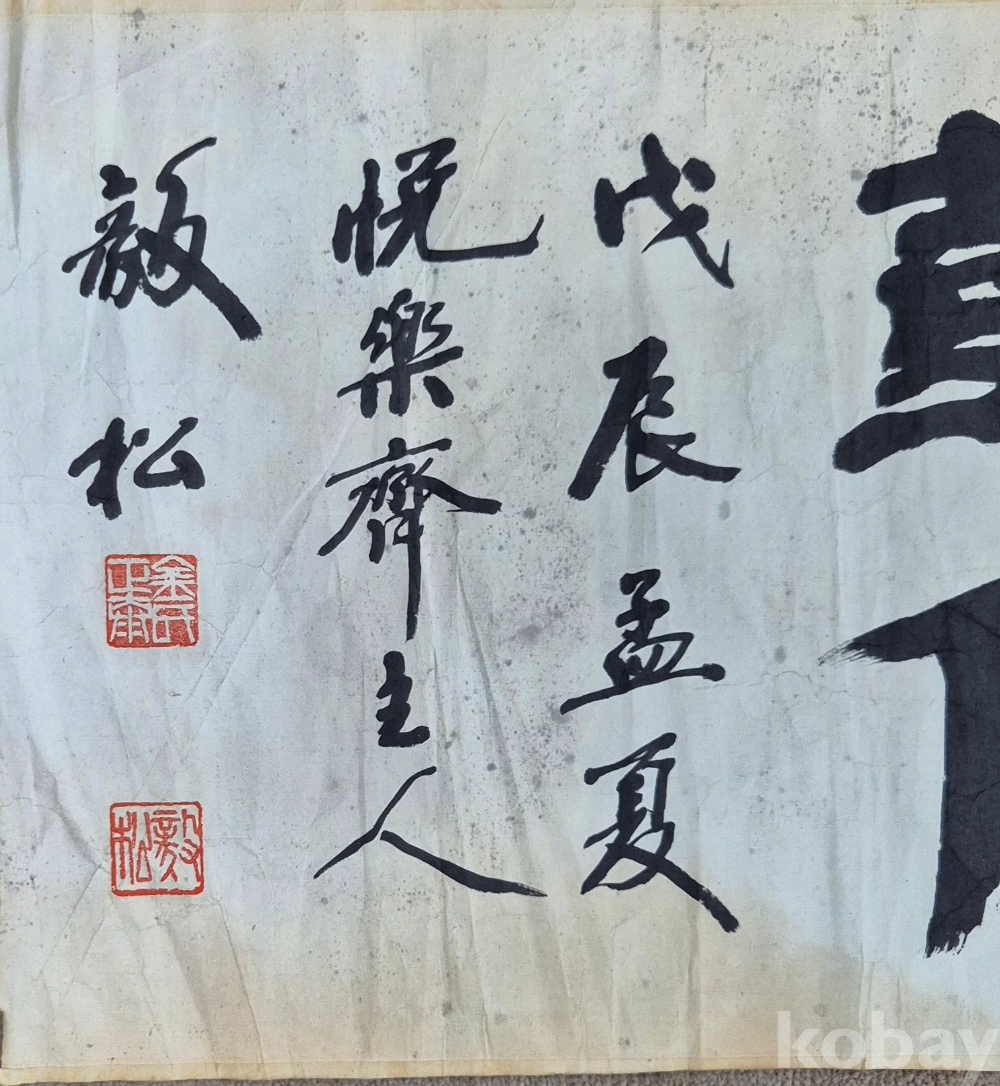 戊辰孟夏
悅樂齊主人
毅松
金氏
毅松
kobay